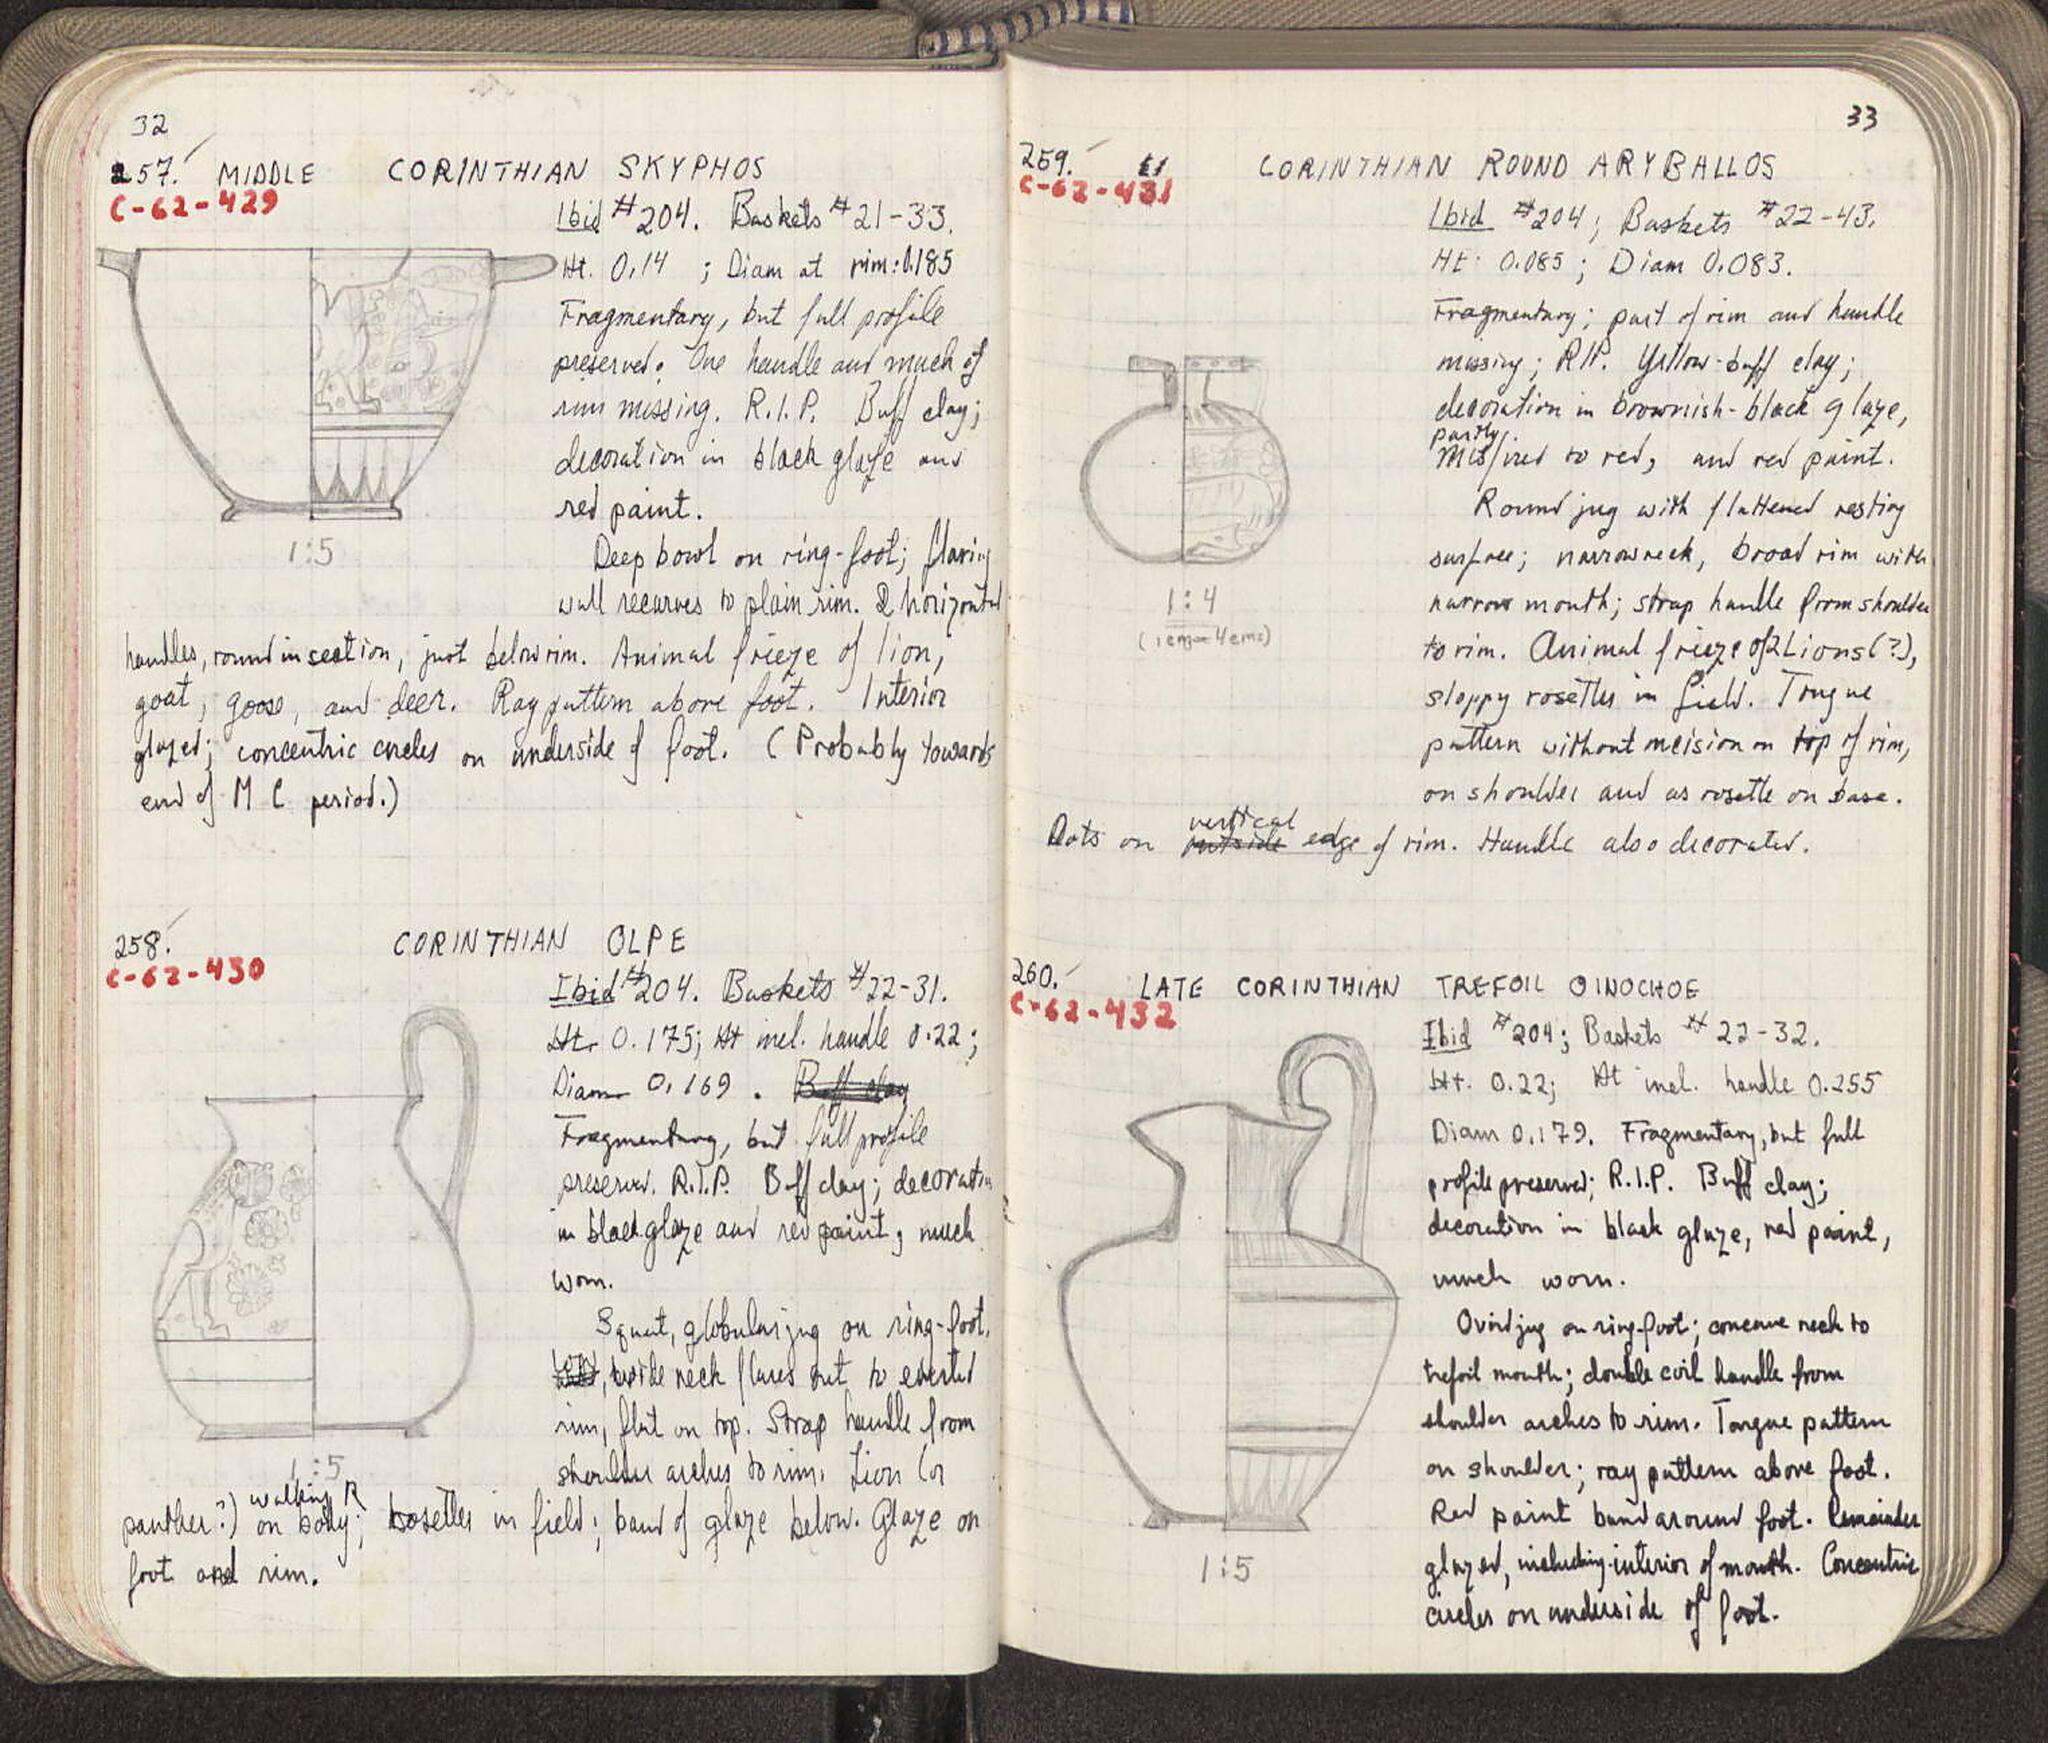 32
257. MIDDLE CORINTHIAN SKYPHOS
C-62-429
Ibid #204. Baskets #21-33.
Ht. 0.14 ; Diam at rim: 0.185
Fragmentary, but full profile
preserved. One handle and much of
rim missing. R.I.P. Buff clay;
decoration in black glaze and
red paint.
Deep bowl on ring-foot; flaring
wall recurves to plain rim. 2 horizontal
handles, round in section, just below rim. Animal frieze of lion,
goat, goose, and deer. Ray pattern above foot. Interior
glazed; concentric circles on underside of foot. (Probably towards
end of M C period.)
1:5
258.
CORINTHIAN OLPE
C-62-430
Ibid #204. Baskets #22-31.
Ht. 0.175; Ht incl. handle 0.22;
Diam 0.169. Buff clay
Fragmentary, but full profile
preserved. R.I.P. Buff clay; decoration
in black glaze and red paint, much
worn.
Squat, globular jug on ring-foot,
, wide neck flares out to everted
rim, flat on top. Strap handle from
shoulder arches to rim. Lion (or
panther?) walking R on body; rosettes in field; band of glaze below. Glaze on
foot and rim.
1:5
33
259.
CORINTHIAN ROUND ARYBALLOS
C-62-431
Ibid #204; Baskets #22-43.
Ht. 0.085; Diam 0.083.
Fragmentary; part of rim and handle
missing; RIP. Yellow-buff clay;
decoration in brownish-black glaze,
partly
misfired to red, and red paint.
Round jug with flattened resting
surface; narrow neck, broad rim with
narrow mouth; strap handle from shoulder
to rim. Animal frieze of 2 Lions (?),
sloppy rosettes in field. Tongue
pattern without incision on top of rim,
on shoulder and as rosette on base.
Dots on outside vertical edge of rim. Handle also decorated.
1:4
(1cm = 4cms)
260.
LATE CORINTHIAN TREFOIL OINOCHOE
C-62-432
Ibid #204; Baskets #22-32.
Ht. 0.22; Ht incl. handle 0.255
Diam 0.179. Fragmentary, but full
profile preserved; R.I.P. Buff clay;
decoration in black glaze, red paint,
much worn.
Ovoid jug on ring-foot; concave neck to
trefoil mouth; double coil handle from
shoulder arches to rim. Tongue pattern
on shoulder; ray pattern above foot.
Red paint band around foot. Remainder
glazed, including interior of mouth. Concentric
circles on underside of foot.
1:5